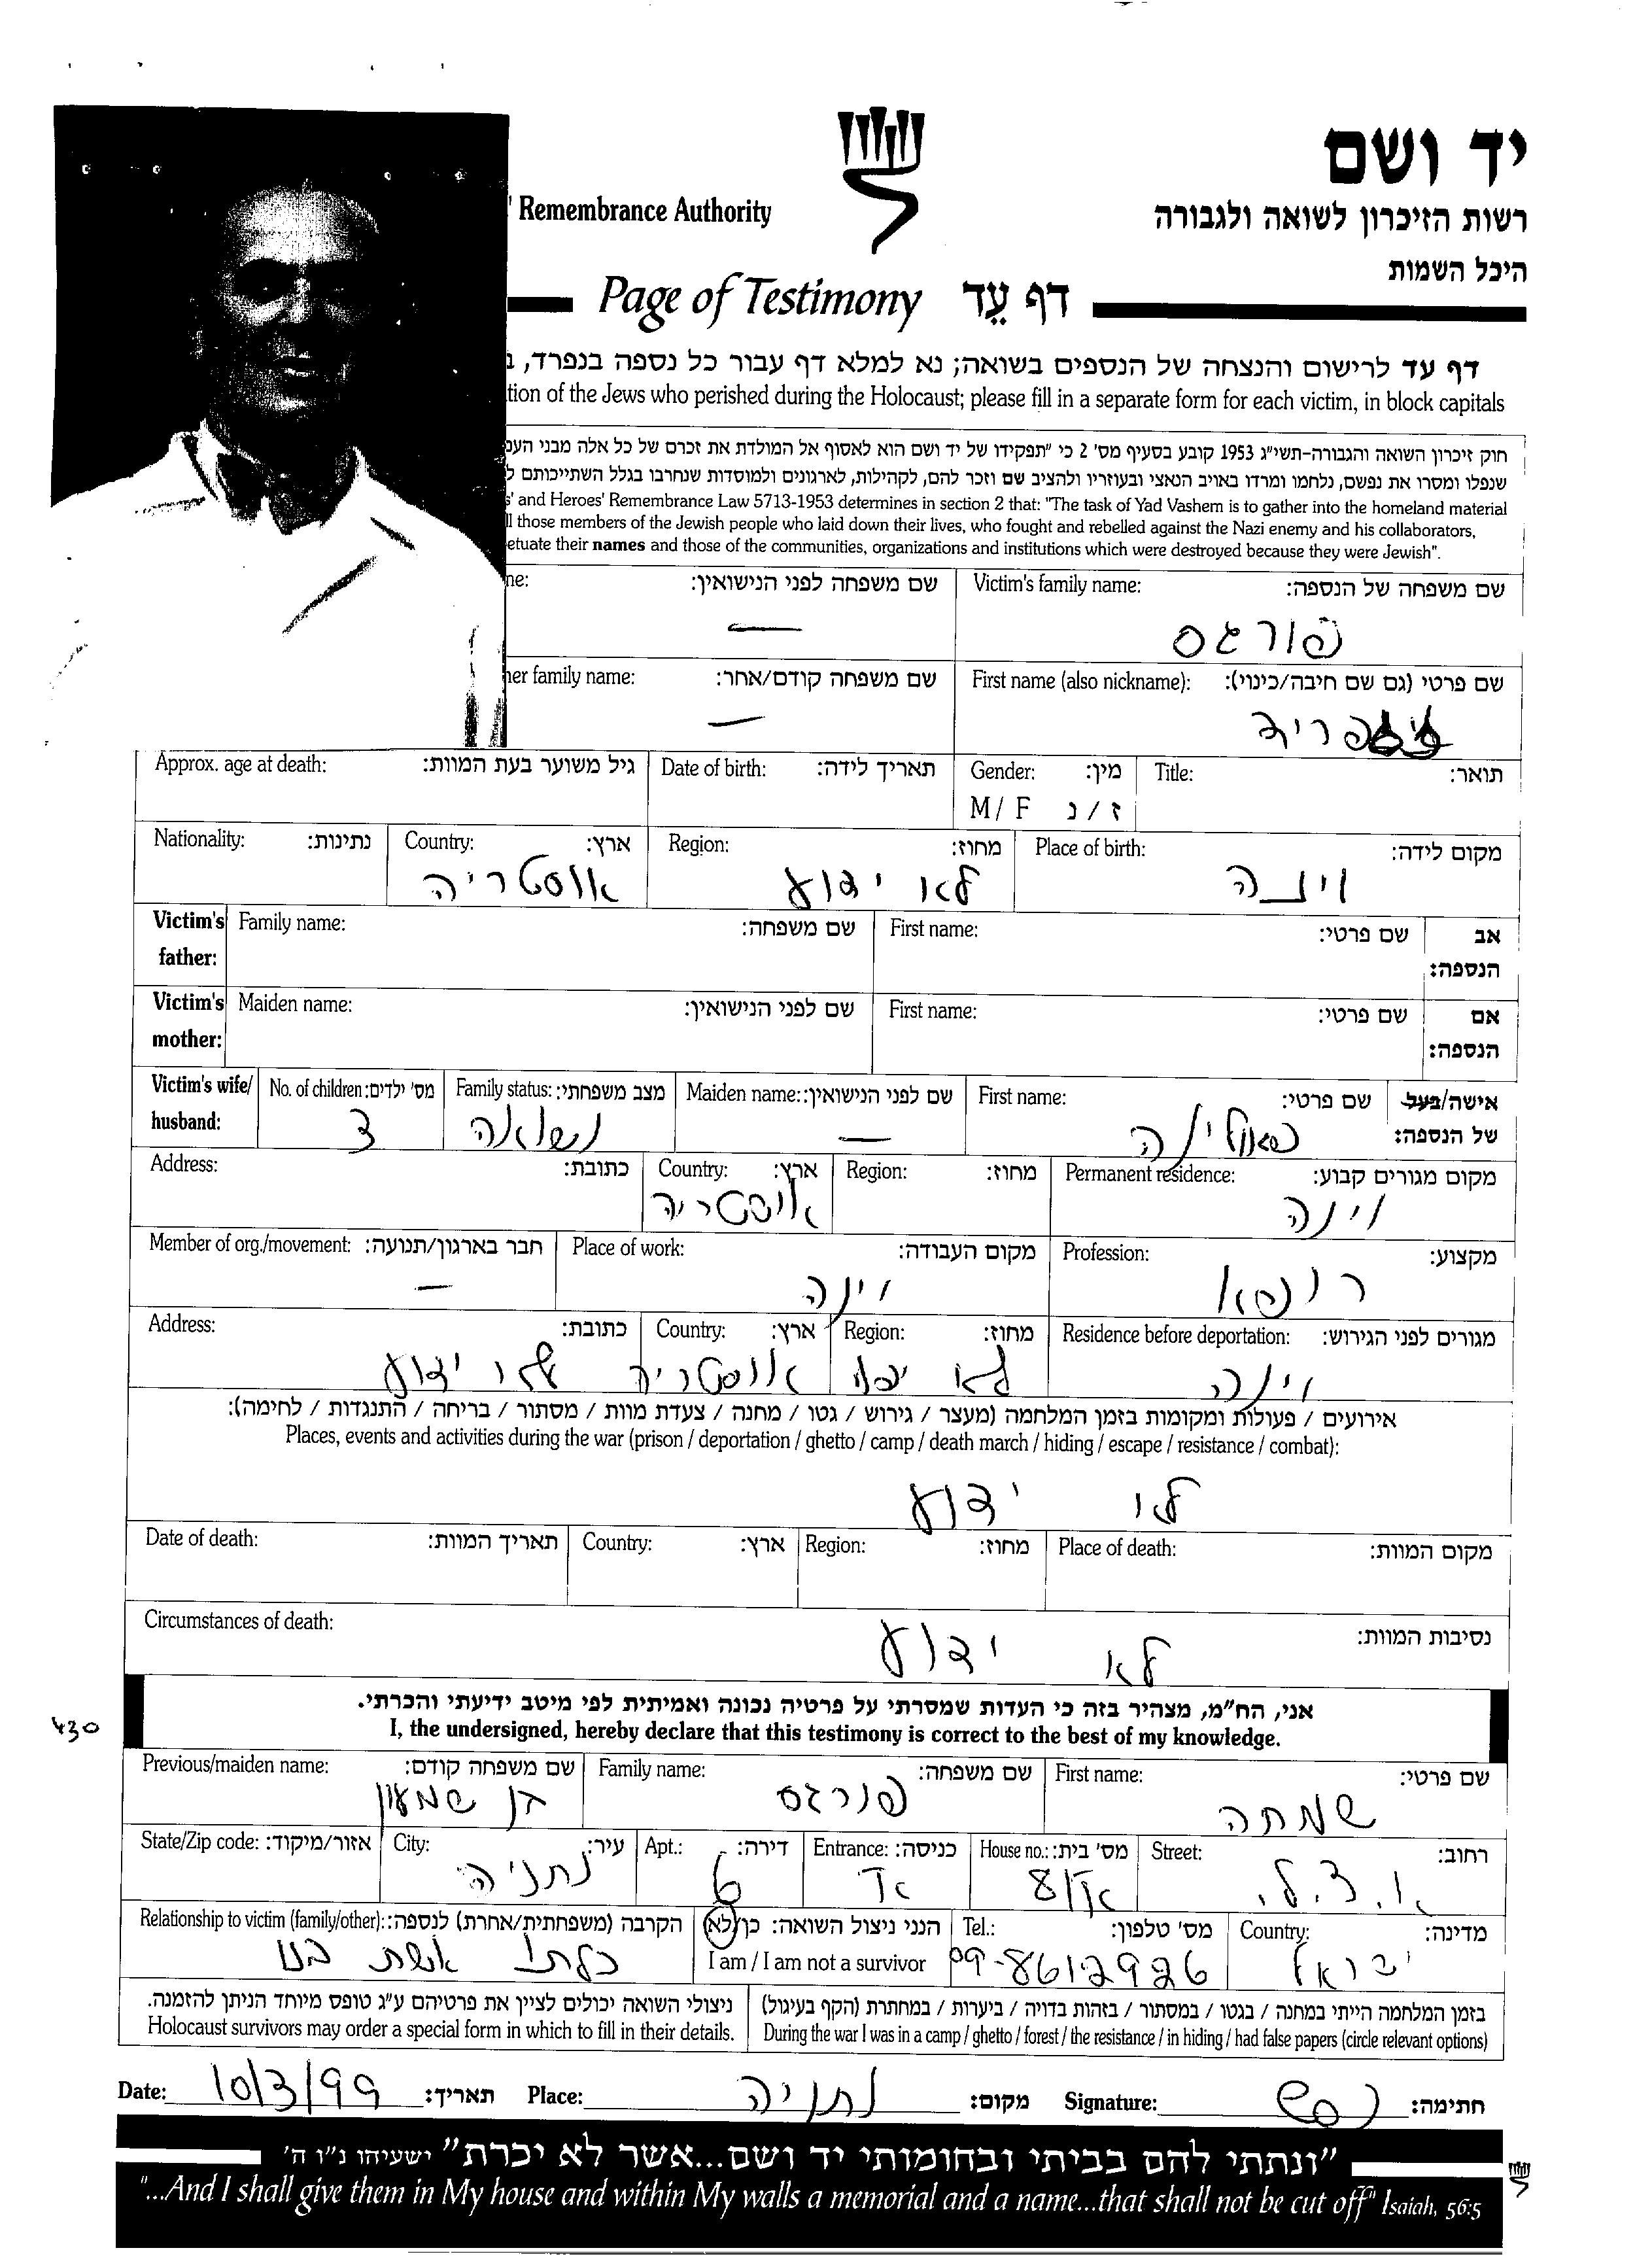 יד ושם
רשות הזיכרון לשואה ולגבורה
' Remembrance Authority
היכל השמות
Page of Testimony דף עֵד
דף עד לרישום והנצחה של הנספים בשואה; נא למלא דף עבור כל נספה בנפרד, ב
tion of the Jews who perished during the Holocaust; please fill in a separate form for each victim, in block capitals
חוק זיכרון השואה והגבורה-תשי״ג 1953 קובע בסעיף מס' 2 כי ״תפקידו של יד ושם הוא לאסוף אל המולדת את זכרם של כל אלה מבני העם
שנפלו ומסרו את נפשם, נלחמו ומרדו באויב הנאצי ובעוזריו ולהציב שם וזכר להם, לקהילות, לארגונים ולמוסדות שנחרבו בגלל השתייכותם ל
s' and Heroes' Remembrance Law 5713-1953 determines in section 2 that: "The task of Yad Vashem is to gather into the homeland material
ll those members of the Jewish people who laid down their lives, who fought and rebelled against the Nazi enemy and his collaborators,
etuate their names and those of the communities, organizations and institutions which were destroyed because they were Jewish".
שם משפחה של הנספה: Victim's family name: שם משפחה לפני הנישואין: ne:
פורגס —
שם פרטי (גם שם חיבה/כינוי): First name (also nickname): שם משפחה קודם/אחר: her family name:
—
תואר: Title: מין: Gender: תאריך לידה: Date of birth: גיל משוער בעת המוות: Approx. age at death:
ז / נ M / F
מקום לידה: Place of birth: מחוז: Region: ארץ: Country: נתינות: Nationality:
וינה לא ידוע אוסטריה
אב הנספה: שם פרטי: First name: שם משפחה: Family name: Victim's father:
אם הנספה: שם פרטי: First name: שם לפני הנישואין: Maiden name: Victim's mother:
אישה/בעל של הנספה: שם פרטי: First name: שם לפני הנישואין: Maiden name: מצב משפחתי: Family status: מס' ילדים: No. of children: Victim's wife/ husband:
פאולינה — נשואה 3
מקום מגורים קבוע: Permanent residence: מחוז: Region: ארץ: Country: כתובת: Address:
וינה אוסטריה
מקצוע: Profession: מקום העבודה: Place of work: חבר בארגון/תנועה: Member of org./movement:
רופא וינה —
מגורים לפני הגירוש: Residence before deportation: מחוז: Region: ארץ: Country: כתובת: Address:
וינה לא אוסטריה ידוע
אירועים / פעולות ומקומות בזמן המלחמה (מעצר / גירוש / גטו / מחנה / צעדת מוות / מסתור / בריחה / התנגדות / לחימה):
Places, events and activities during the war (prison / deportation / ghetto / camp / death march / hiding / escape / resistance / combat):
לו ידוע
מקום המוות: Place of death: מחוז: Region: ארץ: Country: תאריך המוות: Date of death:
נסיבות המוות: Circumstances of death:
לא ידוע
אני, הח״מ, מצהיר בזה כי העדות שמסרתי על פרטיה נכונה ואמיתית לפי מיטב ידיעתי והכרתי.
430
I, the undersigned, hereby declare that this testimony is correct to the best of my knowledge.
שם פרטי: First name: שם משפחה: Family name: שם משפחה קודם: Previous/maiden name:
שמחה פורגס בן שמעון
רחוב: Street: מס' בית: House no.: כניסה: Entrance: דירה: Apt.: עיר: City: אזור/מיקוד: State/Zip code:
א.צ.ל. 6 נתניה
מדינה: Country: מס' טלפון: Tel.: הנני ניצול השואה: כן/לא הקרבה (משפחתית/אחרת) לנספה: Relationship to victim (family/other):
I am / I am not a survivor
ישראל 09-8612926 כלתו אשת בנו
בזמן המלחמה הייתי במחנה / בגטו / במסתור / בזהות בדויה / ביערות / במחתרת (הקף בעיגול) ניצולי השואה יכולים לציין את פרטיהם ע״ג טופס מיוחד הניתן להזמנה.
During the war I was in a camp / ghetto / forest / the resistance / in hiding / had false papers (circle relevant options) Holocaust survivors may order a special form in which to fill in their details.
חתימה: Signature: מקום: נתניה Place: תאריך: 10/3/99 Date:
״ונתתי להם בביתי ובחומותי יד ושם...אשר לא יכרת״ ישעיהו נ״ו ה'
"...And I shall give them in My house and within My walls a memorial and a name...that shall not be cut off" Isaiah, 56:5